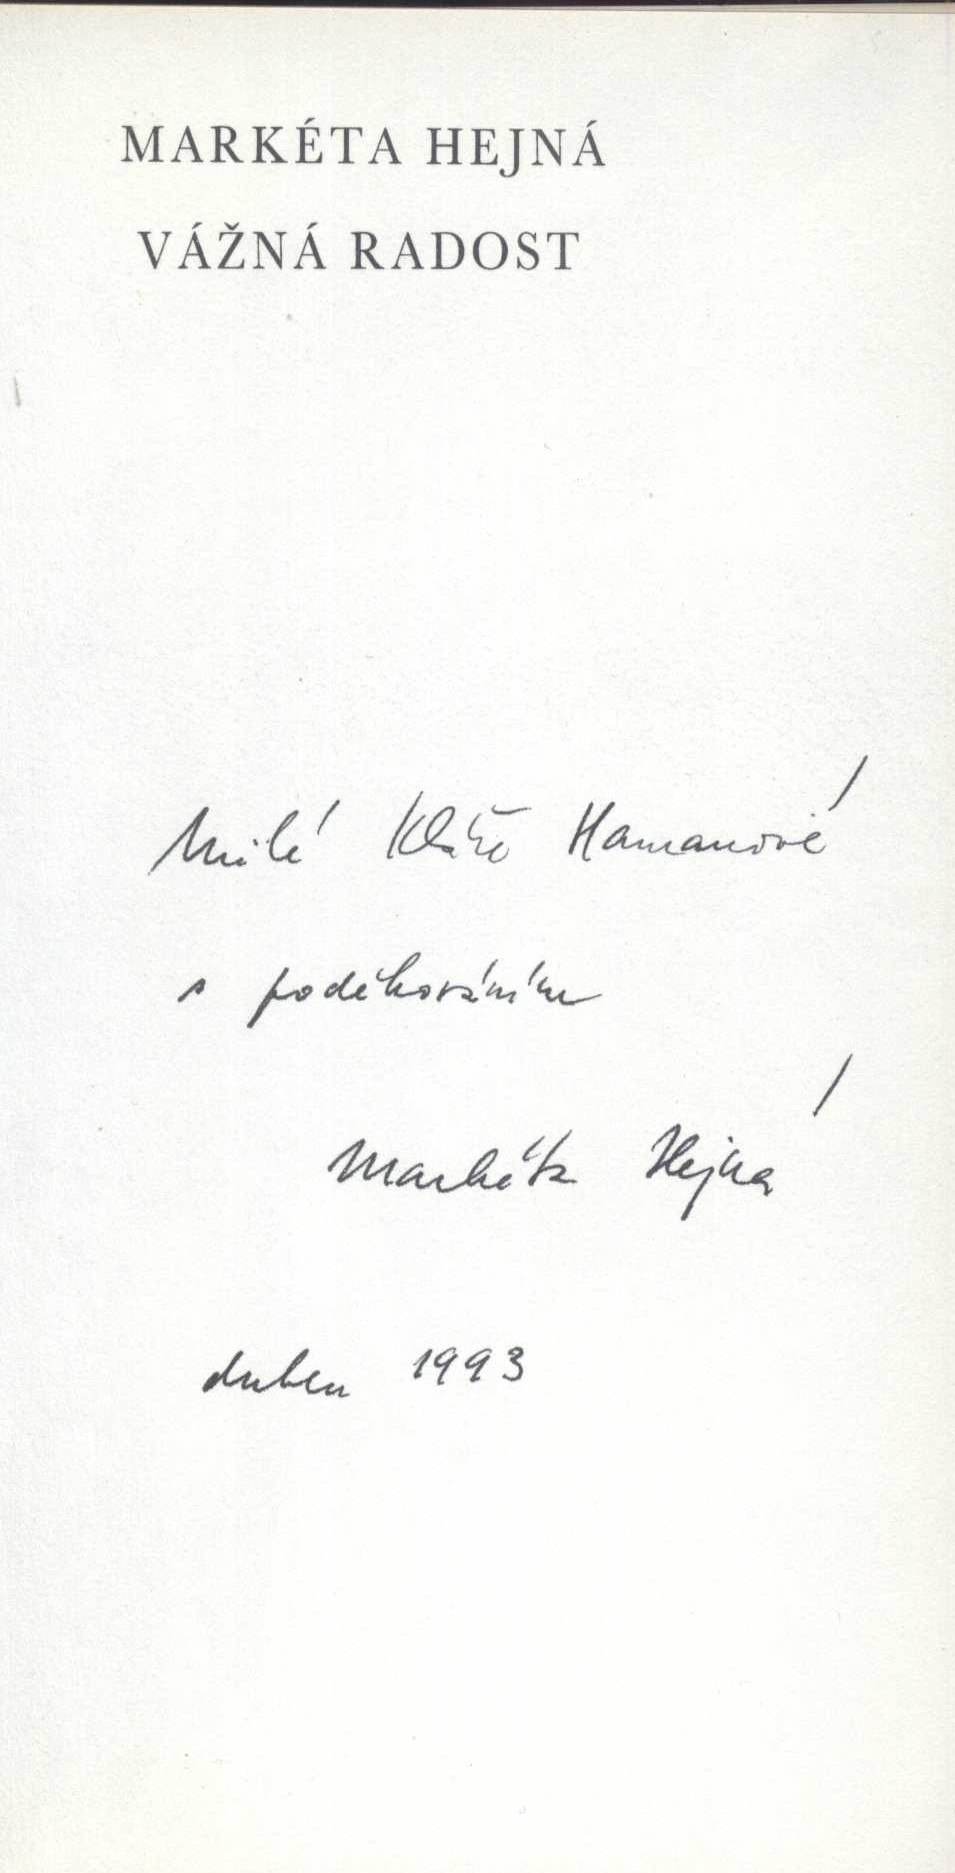 MARKÉTA HEJNÁ
VÁŽNÁ RADOST
Milé Kláře Hamanové
s poděkováním
Markéta Hejná
duben 1993